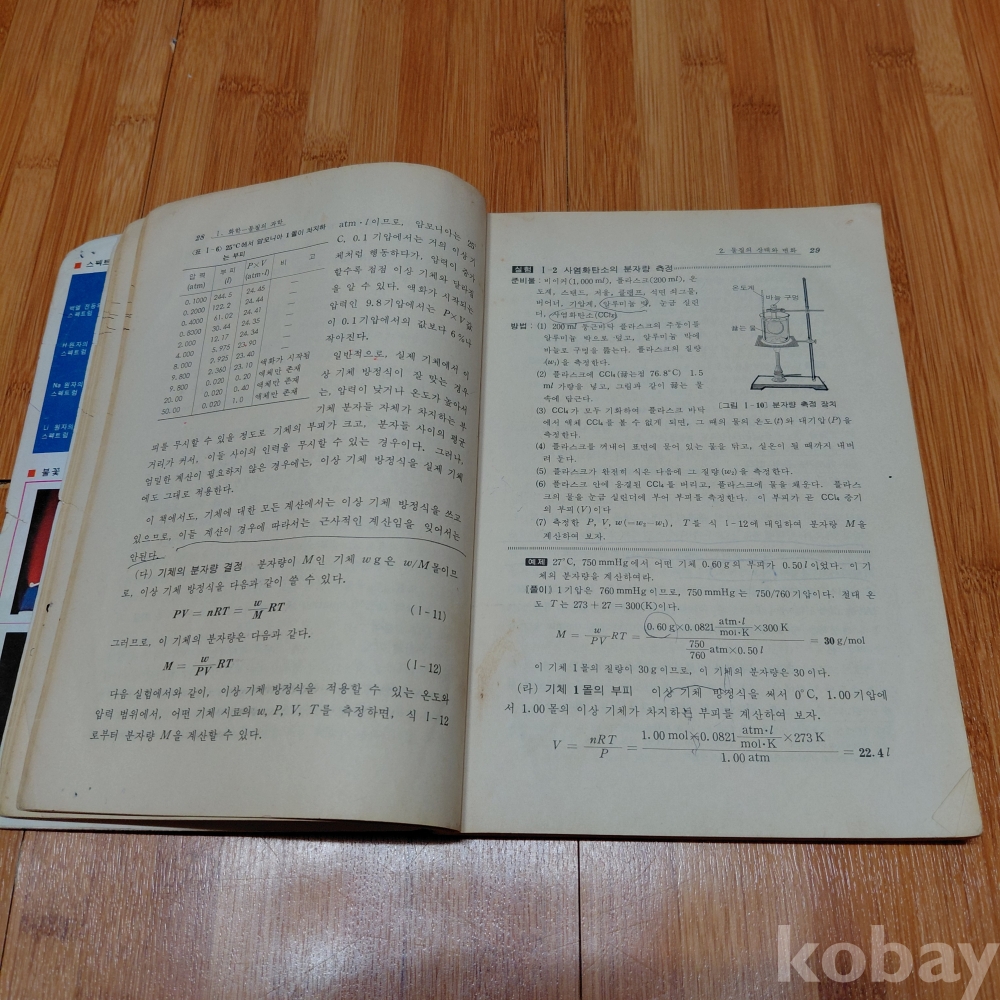 ■ 스펙트
스펙트럼
H 원자의
스펙트럼
Na 원자의
스펙트럼
Li 원자의
스펙트럼
■ 불꽃
28 Ⅰ. 화학—물질의 과학
〈표 Ⅰ-6〉 25°C에서 암모니아 1몰이 차지하
는 부피
압 력 (atm) 부 피 (l) P×V (atm·l) 비 고
0.1000 244.5 24.45 —
0.2000 122.2 24.44 —
0.4000 61.02 24.41 —
0.8000 30.44 24.35 —
2.000 12.17 24.34 —
4.000 5.975 23.90 —
8.000 2.925 23.40 —
9.800 2.360 23.10 액화가 시작됨
9.800 0.020 0.20 액체만 존재
20.00 0.020 0.40 액체만 존재
50.00 0.020 1.0 액체만 존재
atm·l이므로, 암모니아는 25°
C, 0.1기압에서는 거의 이상 기
체처럼 행동하다가, 압력이 증가
할수록 점점 이상 기체와 달라짐
을 알 수 있다. 액화가 시작되는
압력인 9.8기압에서는 P×V값
이 0.1기압에서의 값보다 6%나
작아진다.
일반적으로, 실제 기체에서 이
상 기체 방정식이 잘 맞는 경우
는, 압력이 낮거나 온도가 높아서
기체 분자들 자체가 차지하는 부
피를 무시할 수 있을 정도로 기체의 부피가 크고, 분자들 사이의 평균
거리가 커서, 이들 사이의 인력을 무시할 수 있는 경우이다. 그러나,
엄밀한 계산이 필요하지 않은 경우에는, 이상 기체 방정식을 실제 기체
에도 그대로 적용한다.
이 책에서도, 기체에 대한 모든 계산에서는 이상 기체 방정식을 쓰고
있으므로, 이들 계산이 경우에 따라서는 근사적인 계산임을 잊어서는
안된다.
(다) 기체의 분자량 결정 분자량이 M인 기체 w g은 w/M몰이므
로, 이상 기체 방정식을 다음과 같이 쓸 수 있다.
PV = nRT = w/M RT (Ⅰ-11)
그러므로, 이 기체의 분자량은 다음과 같다.
M = w/PV RT (Ⅰ-12)
다음 실험에서와 같이, 이상 기체 방정식을 적용할 수 있는 온도와
압력 범위에서, 어떤 기체 시료의 w, P, V, T를 측정하면, 식 Ⅰ-12
로부터 분자량 M을 계산할 수 있다.
2. 물질의 상태와 변화 29
실험 Ⅰ-2 사염화탄소의 분자량 측정
준비물: 비이커(1,000 ml), 플라스크(200 ml), 온
도계, 스탠드, 저울, 클램프, 석면 쇠그물,
버어너, 기압계, 알루미늄 박, 눈금 실린
더, 사염화탄소(CCl₄)
방법: (1) 200 ml 둥근바닥 플라스크의 주둥이를
알루미늄 박으로 덮고, 알루미늄 박에
바늘로 구멍을 뚫는다. 플라스크의 질량
(w₁)을 측정한다.
(2) 플라스크에 CCl₄(끓는점 76.8°C) 1.5
ml 가량을 넣고, 그림과 같이 끓는 물
속에 담근다.
(3) CCl₄가 모두 기화하여 플라스크 바닥
에서 액체 CCl₄를 볼 수 없게 되면, 그 때의 물의 온도(t)와 대기압(P)을
측정한다.
(4) 플라스크를 꺼내어 표면에 묻어 있는 물을 닦고, 실온이 될 때까지 내버
려 둔다.
(5) 플라스크가 완전히 식은 다음에 그 질량(w₂)을 측정한다.
(6) 플라스크 안에 응결된 CCl₄를 버리고, 플라스크에 물을 채운다. 플라스
크의 물을 눈금 실린더에 부어 부피를 측정한다. 이 부피가 곧 CCl₄ 증기
의 부피(V)이다
(7) 측정한 P, V, w(=w₂−w₁), T를 식 Ⅰ-12에 대입하여 분자량 M을
계산하여 보자.
온도계
바늘 구멍
끓는 물
[그림 Ⅰ-10] 분자량 측정 장치
예제 27°C, 750 mmHg에서 어떤 기체 0.60 g의 부피가 0.50 l이었다. 이 기
체의 분자량을 계산하여라.
[풀이] 1기압은 760 mmHg이므로, 750 mmHg는 750/760기압이다. 절대 온
도 T는 273+27=300(K)이다.
M = w/PV RT = 0.60 g×0.0821 atm·l/mol·K ×300 K / 750/760 atm×0.50 l = 30 g/mol
이 기체 1몰의 질량이 30 g이므로, 이 기체의 분자량은 30이다.
(라) 기체 1몰의 부피 이상 기체 방정식을 써서 0°C, 1.00기압에
서 1.00몰의 이상 기체가 차지하는 부피를 계산하여 보자.
V = nRT/P = 1.00 mol×0.0821 atm·l/mol·K ×273 K / 1.00 atm = 22.4 l
kobay